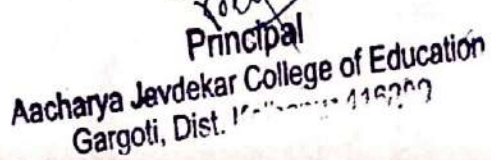 Principal
Aacharya Jevdekar College of Education
Gargoti, Dist.